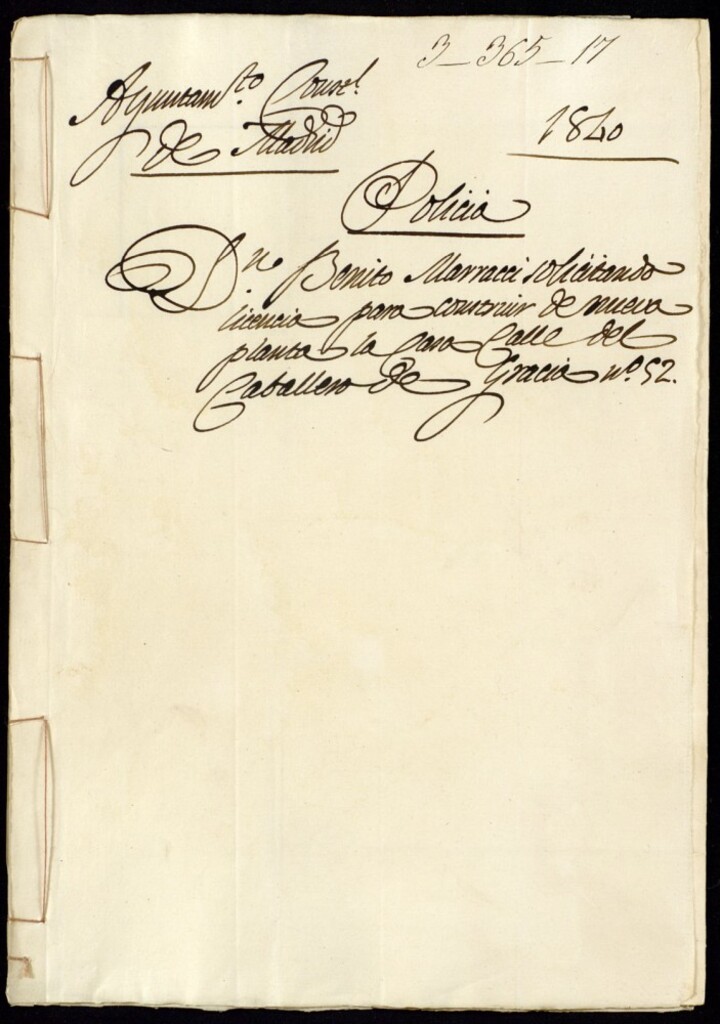 3-365-17
Ayuntam.to Const.l
de Madrid
1840
Policia
D.n Benito Marracci solicitando
licencia para construir de nueva
planta la casa Calle del
Caballero de Gracia nº. 52.